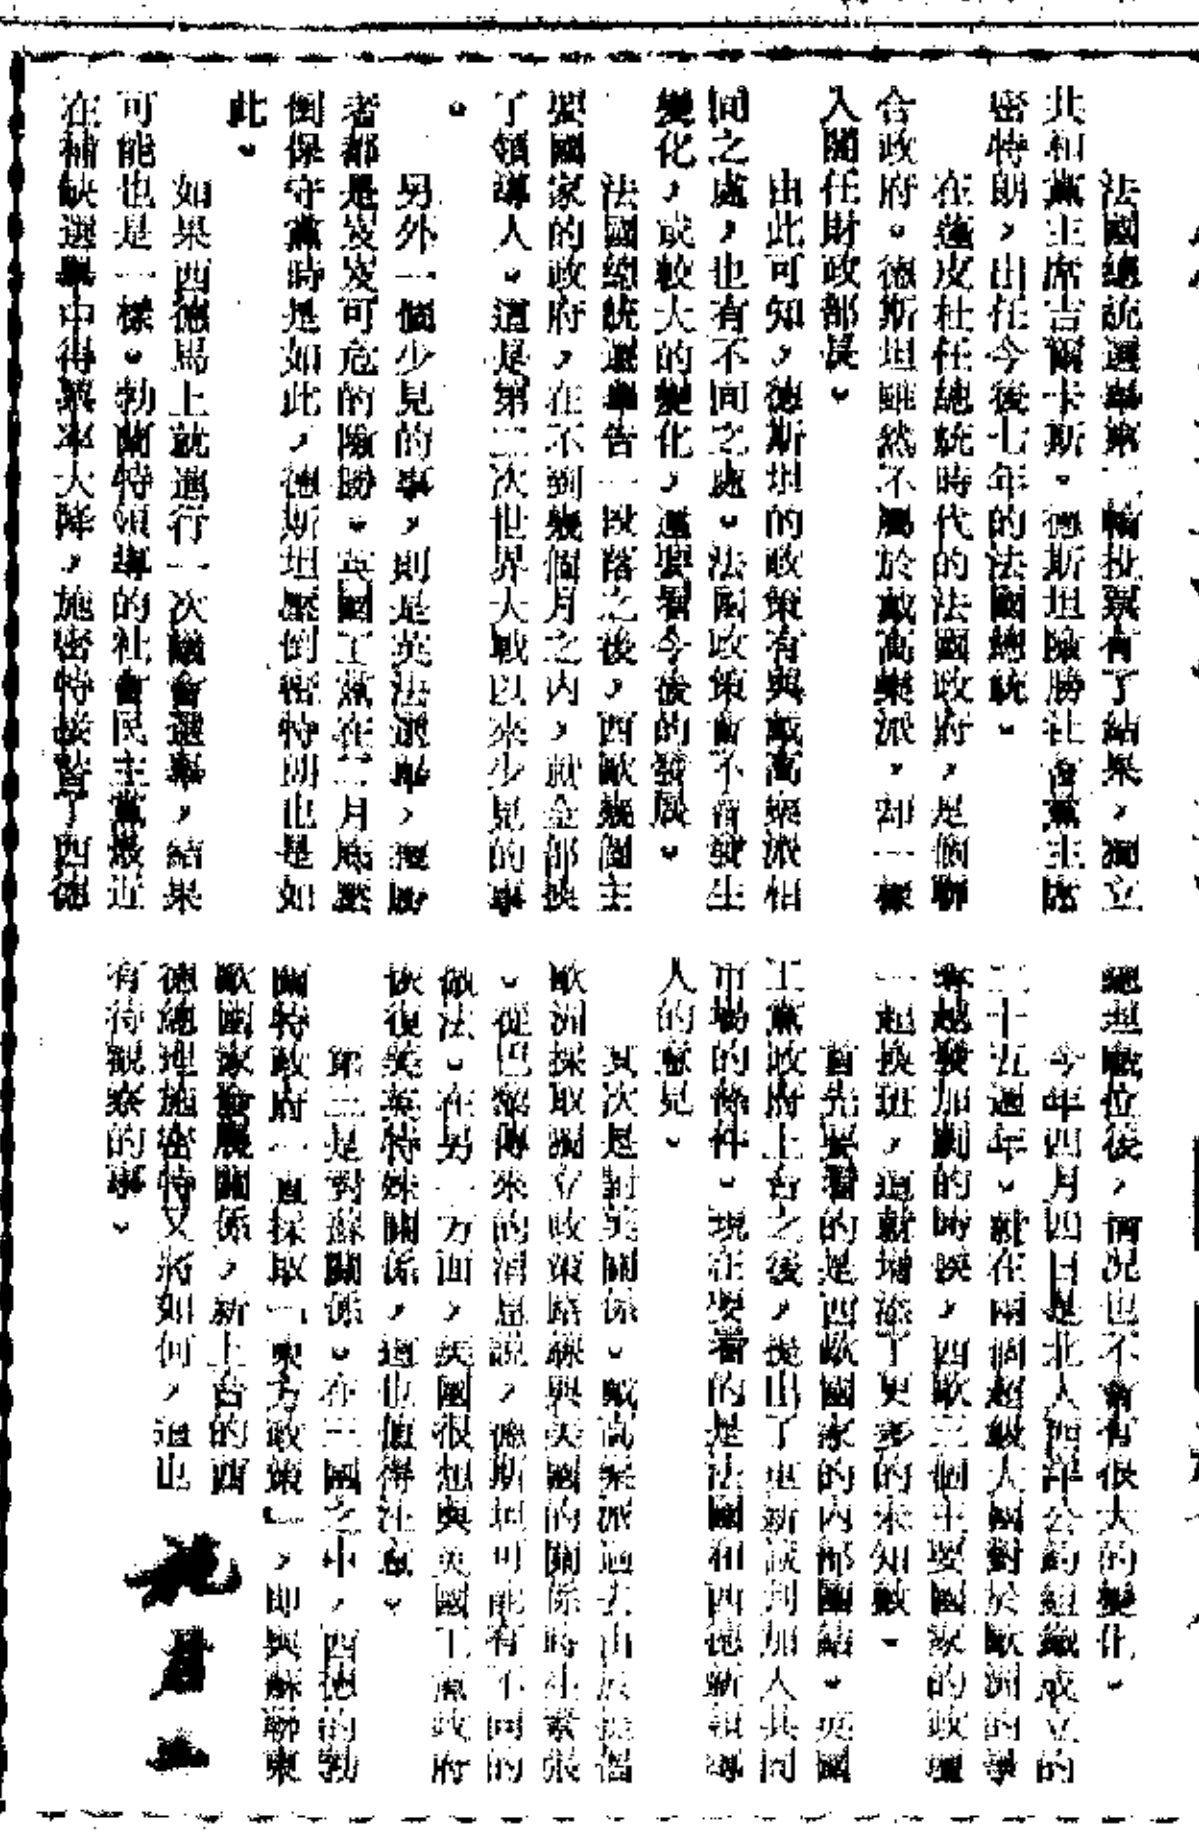 法國總統選舉第二輪投票有了結果，獨立
共和黨主席吉爾卡斯。德斯坦險勝社會黨主席
密特朗，出任今後七年的法國總統。
在蓬皮杜任總統時代的法國政府，是個聯
合政府。德斯坦雖然不屬於戴高樂派，却一樣
入閣任財政部長。
由此可知，德斯坦的政策有與戴高樂派相
同之處，也有不同之處。法國政策會不會發生
變化，或較大的變化，還要看今後的發展。
法國總統選舉告一段落之後，西歐幾個主
要國家的政府，在不到幾個月之內，就全部換
了領導人。這是第二次世界大戰以來少見的事
。
另外一個少見的事，則是英法選舉，獲勝
者都是岌岌可危的險勝。英國工黨在二月底壓
倒保守黨時是如此，德斯坦壓倒密特朗也是如
此。
如果西德馬上就進行一次議會選舉，結果
可能也是一樣。勃蘭特領導的社會民主黨最近
在補缺選舉中得票率大降，施密特接替了西德
總理職位後，情況也不會有很大的變化。
今年四月四日是北大西洋公約組織成立的
二十五週年。就在兩個超級大國對於歐洲的爭
奪越發加劇的時候，西歐三個主要國家的政壇
一起換班，這就增添了更多的未知數。
首先要看的是西歐國家的內部團結。英國
工黨政府上台之後，提出了重新談判加入共同
市場的條件。現在要看的是法國和西德新領導
人的意見。
其次是對美關係。戴高樂派過去由於提倡
歐洲採取獨立政策路線與美國的關係時生緊張
。從巴黎傳來的消息說，德斯坦可能有不同的
做法。在另一方面，英國很想與美國工黨政府
恢復美英特殊關係，這也值得注意。
第三是對蘇關係。在三國之中，西德的勃
蘭特政府一直採取「東方政策」，即與蘇聯東
歐國家發展關係，新上台的西
德總理施密特又將如何，這也
有待觀察的事。